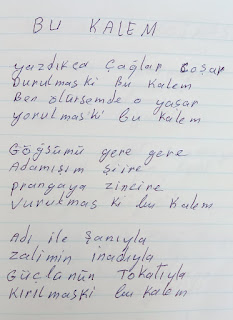 BU KALEM
yazdıkça Çağlar Coşar
Durulmaski bu Kalem
Ben ölürsemde o yaşar
yorulmaski bu kalem
Göğsümü gere gere
Adamışım Şiire
prangaya zincire
Vurulmas ki bu Kalem
Adı ile Şanıyla
zalimin inadıyla
Güçlünün Tokatıyla
Kırılmaski bu kalem